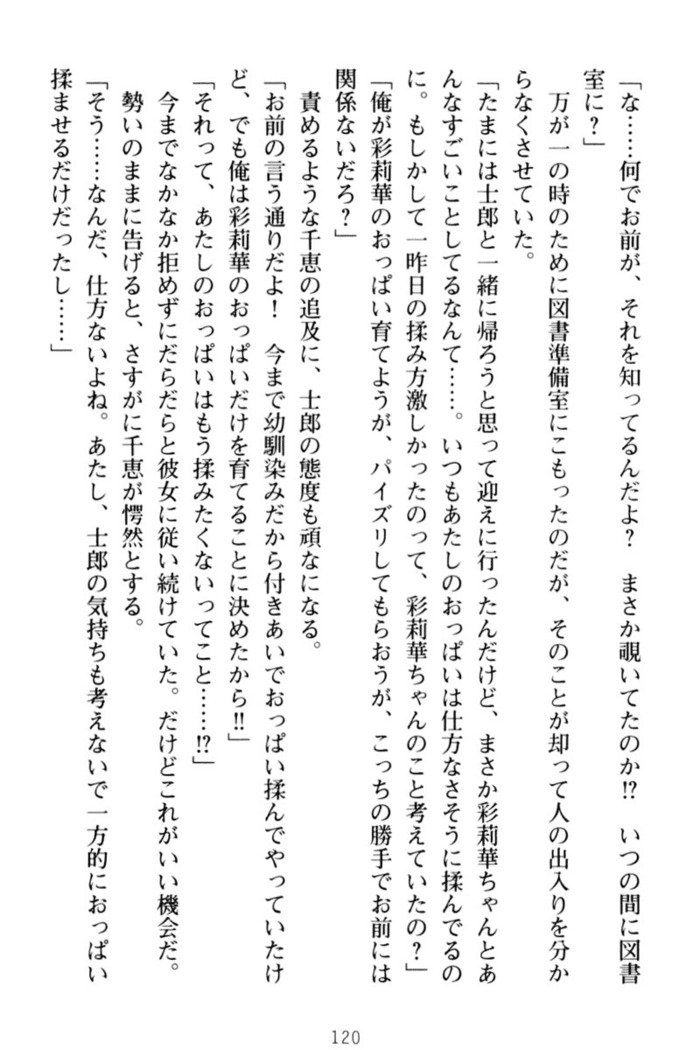 「な……何でお前が、それを知ってるんだよ？　まさか覗いてたのか!?　いつの間に図書
室に？」
　万が一の時のために図書準備室にこもったのだが、そのことが却って人の出入りを分か
らなくさせていた。
「たまには士郎と一緒に帰ろうと思って迎えに行ったんだけど、まさか彩莉華ちゃんとあ
んなすごいことしてるなんて……。いつもあたしのおっぱいは仕方なさそうに揉んでるの
に。もしかして一昨日の揉み方激しかったのって、彩莉華ちゃんのこと考えていたの？」
「俺が彩莉華のおっぱい育てようが、パイズリしてもらおうが、こっちの勝手でお前には
関係ないだろ？」
　責めるような千恵の追及に、士郎の態度も頑なになる。
「お前の言う通りだよ！　今まで幼馴染みだから付きあいでおっぱい揉んでやっていたけ
ど、でも俺は彩莉華のおっぱいだけを育てることに決めたから!!」
「それって、あたしのおっぱいはもう揉みたくないってこと……!?」
　今までなかなか拒めずにだらだらと彼女に従い続けていた。だけどこれがいい機会だ。
　勢いのままに告げると、さすがに千恵が愕然とする。
「そう……なんだ、仕方ないよね。あたし、士郎の気持ちも考えないで一方的におっぱい
揉ませるだけだったし……」
120